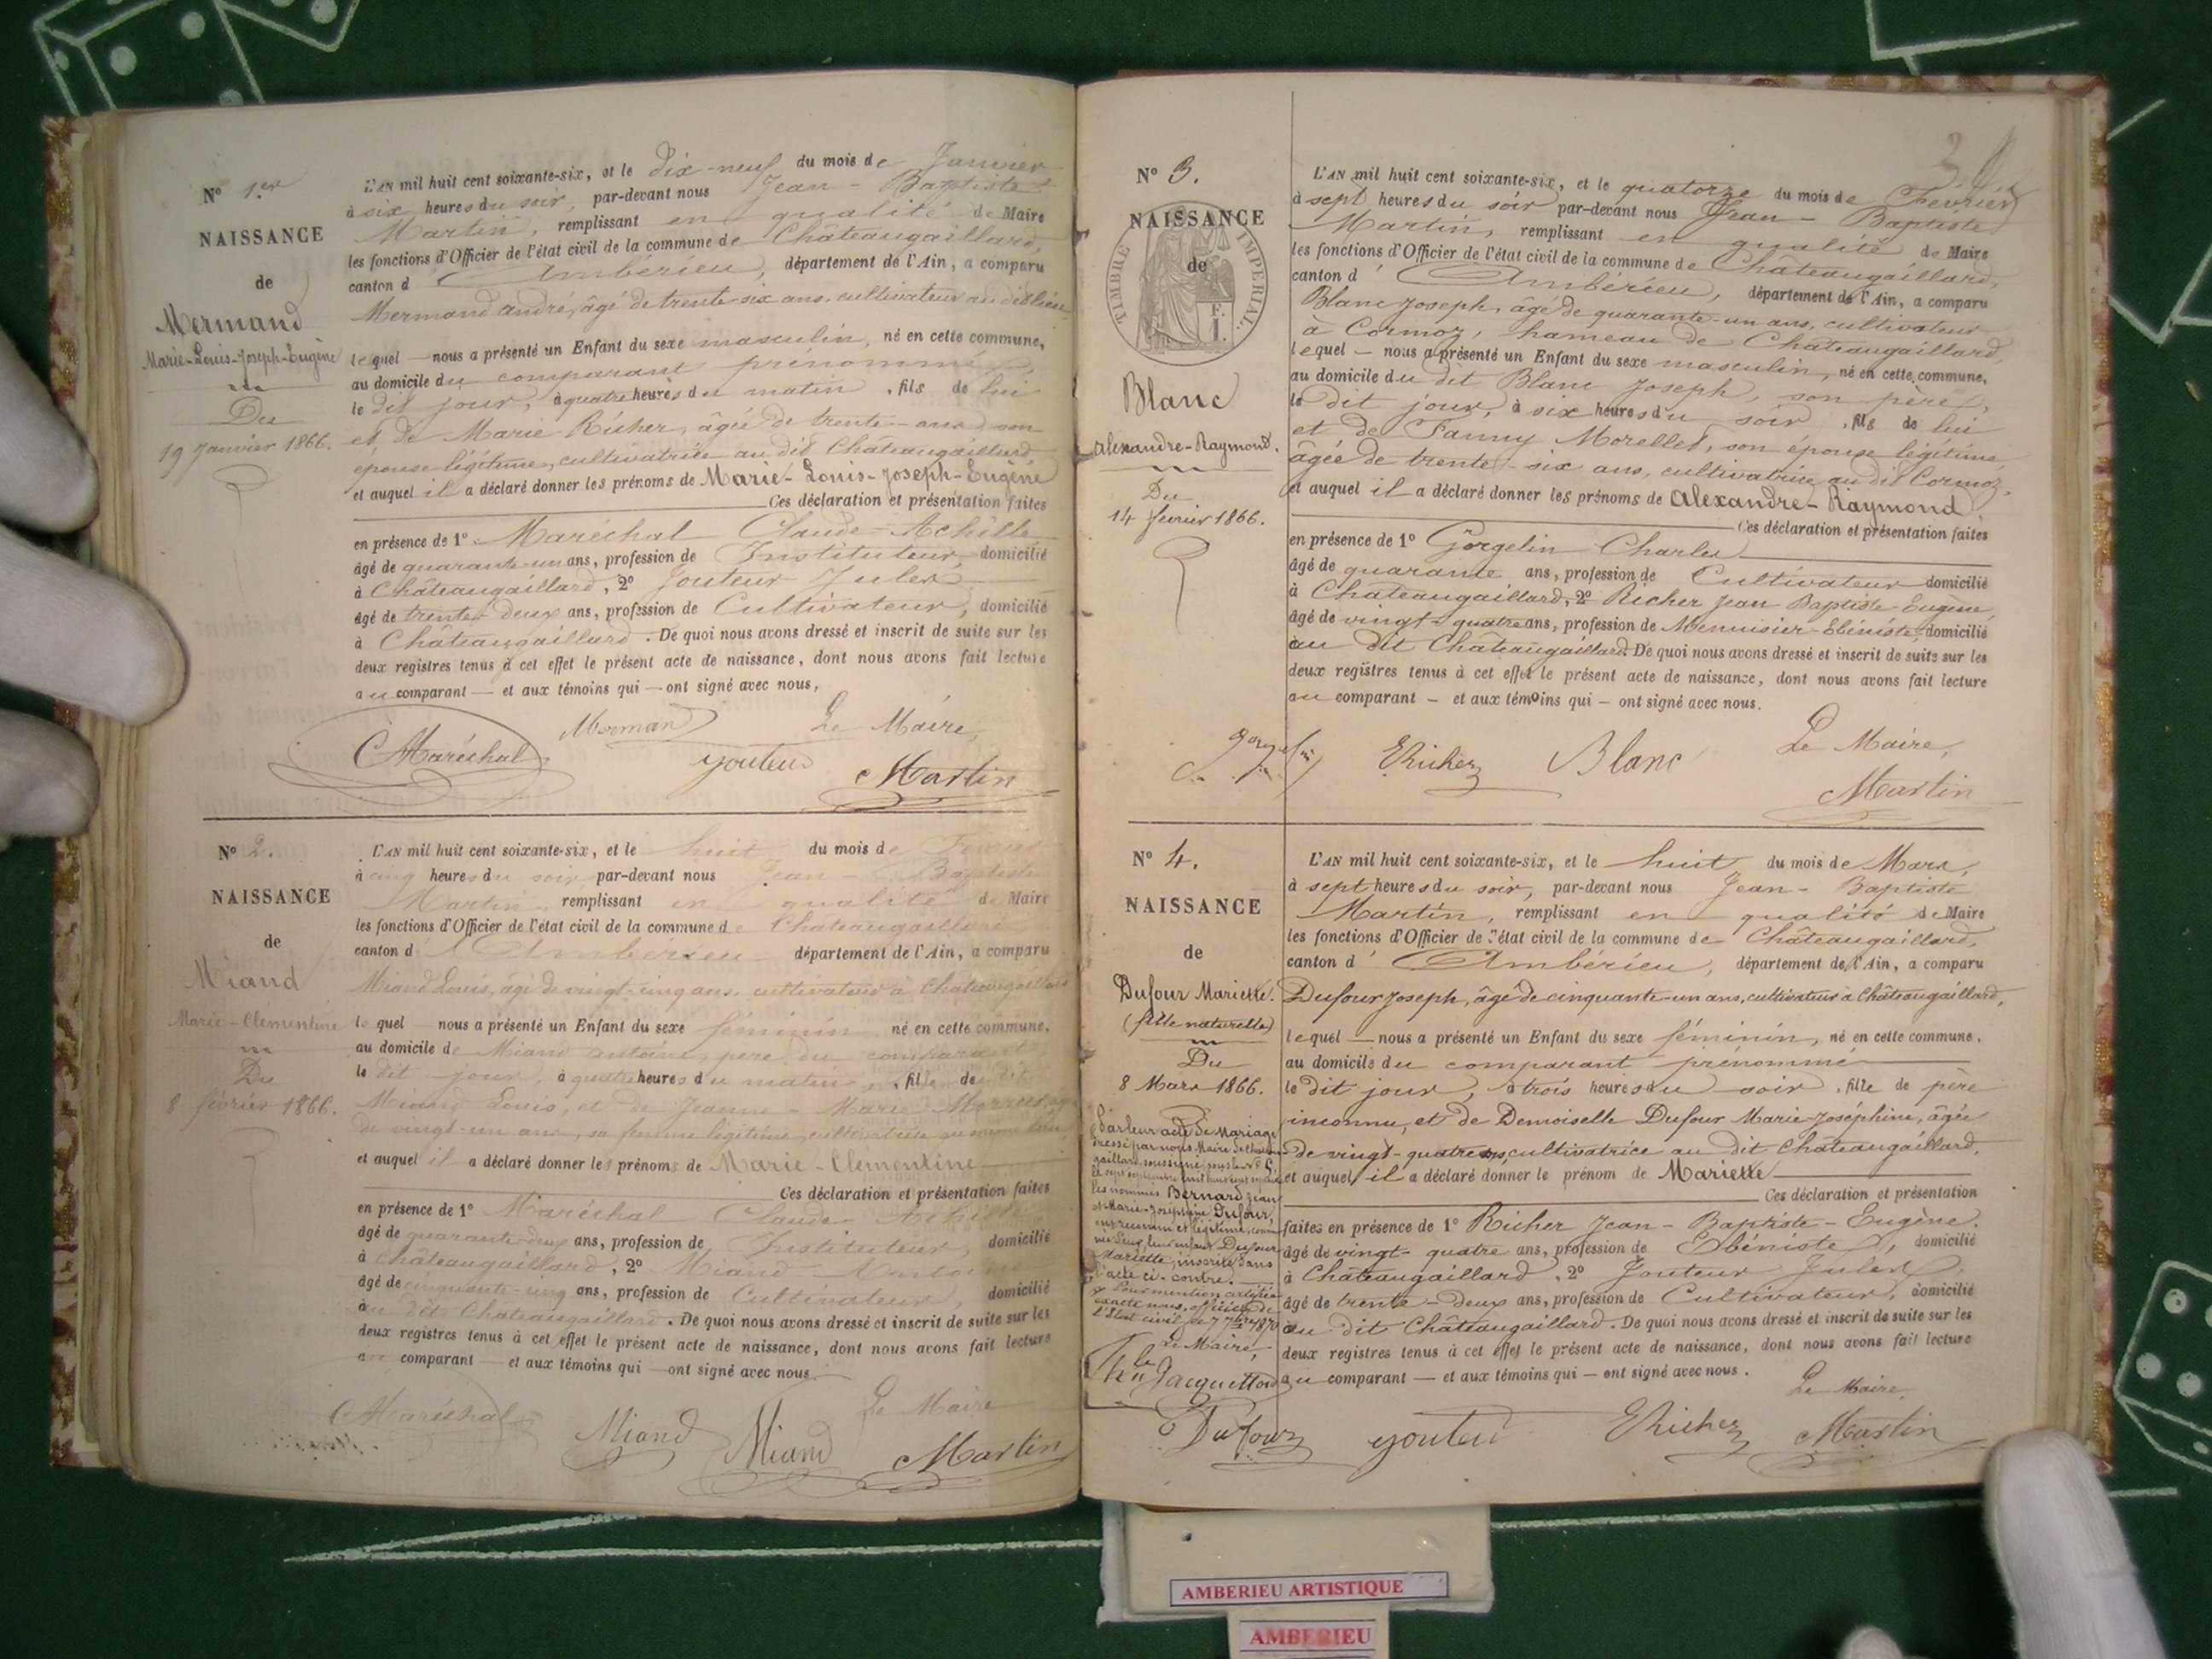 N° 1er
NAISSANCE
de
Mermand
Marie-Louis-Joseph-Eugène
Du
19 Janvier 1866.
L'AN mil huit cent soixante-six, et le dix-neuf du mois de Janvier
à six heures du soir, par-devant nous Jean-Baptiste
Martin, remplissant en qualité de Maire
les fonctions d'Officier de l'état civil de la commune de Châteaugaillard,
canton d'Ambérieu, département de l'Ain, a comparu
Mermand andré, âgé de trente-six ans, cultivateur au dit lieu
lequel — nous a présenté un Enfant du sexe masculin, né en cette commune,
au domicile du comparant prénommé,
le dit jour, à quatre heures du matin, fils de lui
et de Marie Richer, âgée de trente-ans, son
épouse légitime, cultivatrice au dit Châteaugaillard
et auquel il a déclaré donner les prénoms de Marie-Louis-Joseph-Eugène
Ces déclaration et présentation faites
en présence de 1° Maréchal Claude-Achille
âgé de quarante-un ans, profession de Instituteur, domicilié
à Châteaugaillard, 2° Jouteur Jules
âgé de trente-deux ans, profession de Cultivateur, domicilié
à Châteaugaillard. De quoi nous avons dressé et inscrit de suite sur les
deux registres tenus à cet effet le présent acte de naissance, dont nous avons fait lecture
au comparant — et aux témoins qui — ont signé avec nous,
Mermand Le Maire,
CMaréchal Jouteur Martin
N° 2.
NAISSANCE
de
Miand
Marie-Clémentine
Du
8 février 1866.
L'AN mil huit cent soixante-six, et le huit du mois de Février
à cinq heures du soir, par-devant nous Jean-Baptiste
Martin, remplissant en qualité de Maire
les fonctions d'Officier de l'état civil de la commune de Châteaugaillard
canton d'Ambérieu département de l'Ain, a comparu
Miand Louis, âgé de vingt-cinq ans, cultivateur à Châteaugaillard
lequel — nous a présenté un Enfant du sexe féminin né en cette commune,
au domicile de Miand antoine, père du comparant
le dit jour, à quatre heures du matin, fille de dit
Miand Louis, et de Jeanne-Marie
de vingt-un ans, sa femme légitime, cultivatrice au même lieu
et auquel il a déclaré donner les prénoms de Marie-Clémentine
Ces déclaration et présentation faites
en présence de 1° Maréchal Claude Achille
âgé de quarante-deux ans, profession de Instituteur, domicilié
à Châteaugaillard, 2° Miand Antoine
âgé de cinquante-cinq ans, profession de Cultivateur, domicilié
au dit Châteaugaillard. De quoi nous avons dressé et inscrit de suite sur les
deux registres tenus à cet effet le présent acte de naissance, dont nous avons fait lecture
au comparant — et aux témoins qui — ont signé avec nous.
Le Maire
CMaréchal Miand Miand Martin
N° 3.
NAISSANCE
de
TIMBRE IMPÉRIAL
1 F.
Blanc
Alexandre-Raymond.
Du
14 février 1866.
L'AN mil huit cent soixante-six, et le quatorze du mois de Février
à sept heures du soir par-devant nous Jean-Baptiste
Martin, remplissant en qualité de Maire
les fonctions d'Officier de l'état civil de la commune de Châteaugaillard,
canton d'Ambérieu, département de l'Ain, a comparu
Blanc Joseph, âgé de quarante-un ans, cultivateur
à Cormoz, hameau de Châteaugaillard
lequel — nous a présenté un Enfant du sexe masculin, né en cette commune,
au domicile du dit Blanc Joseph, son père,
le dit jour, à six heures du soir, fils de lui
et de Fanny Morellet, son épouse légitime,
âgée de trente-six ans, cultivatrice au dit Cormoz,
et auquel il a déclaré donner les prénoms de Alexandre-Raymond
Ces déclaration et présentation faites
en présence de 1° Gorgelin Charles
âgé de quarante ans, profession de Cultivateur domicilié
à Châteaugaillard, 2° Richer Jean Baptiste Eugène,
âgé de vingt-quatre ans, profession de Menuisier-Ebéniste, domicilié
au dit Châteaugaillard. De quoi nous avons dressé et inscrit de suite sur les
deux registres tenus à cet effet le présent acte de naissance, dont nous avons fait lecture
au comparant — et aux témoins qui — ont signé avec nous.
Gorgelin ERicher Blanc Le Maire,
Martin
N° 4.
NAISSANCE
de
Dufour Mariette.
(fille naturelle)
Du
8 Mars 1866.
Par leur acte de Mariage
dressé par nous Maire de Chateau-
gaillard, soussigné, sous le N° 5,
le sept septembre mil huit cent
les nommés Bernard Jean
et Marie-Joséphine Dufour,
ont reconnu et légitimé, comme
leur enfant Dufour
Mariette, inscrite dans
l'acte ci-contre.
Pour mention certifiée
exacte nous, officier de
l'Etat civil, le 7 7bre 1870
Le Maire,
Jacquetton
L'AN mil huit cent soixante-six, et le huit du mois de Mars,
à sept heures du soir, par-devant nous Jean-Baptiste
Martin, remplissant en qualité de Maire
les fonctions d'Officier de l'état civil de la commune de Châteaugaillard,
canton d'Ambérieu, département de l'Ain, a comparu
Dufour Joseph, âgé de cinquante-un ans, cultivateur à Châteaugaillard,
lequel — nous a présenté un Enfant du sexe féminin, né en cette commune,
au domicile du comparant prénommé
le dit jour, à trois heures du soir, fille de père
inconnu, et de Demoiselle Dufour Marie-Joséphine, âgée
de vingt-quatre ans, cultivatrice au dit Châteaugaillard,
et auquel il a déclaré donner le prénom de Mariette
Ces déclaration et présentation
faites en présence de 1° Richer Jean-Baptiste-Eugène.
âgé de vingt-quatre ans, profession de Ebéniste, domicilié
à Châteaugaillard, 2° Jouteur Jules,
âgé de trente-deux ans, profession de Cultivateur, domicilié
au dit Châteaugaillard. De quoi nous avons dressé et inscrit de suite sur les
deux registres tenus à cet effet le présent acte de naissance, dont nous avons fait lecture
au comparant — et aux témoins qui — ont signé avec nous.
Le Maire
Dufour Jouteur ERicher Martin
AMBERIEU ARTISTIQUE
AMBERIEU